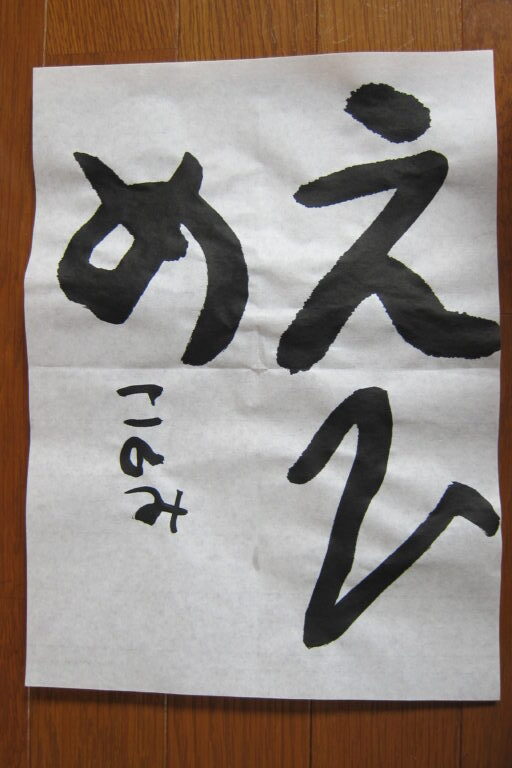 えひ
め
このみ